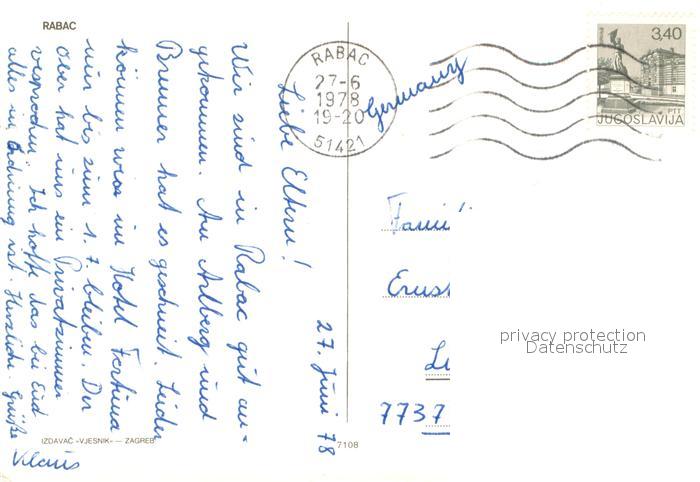 RABAC
27. Juni 78
Liebe Eltern!
Wir sind in Rabac gut an-
gekommen. Am Arlberg und
Brenner hat es geschneit. Leider
können wir im Hotel Fortuna
nur bis zum 1. 7. bleiben. Der
ober hat uns ein Privatzimmer
versprochen. Ich hoffe das bei Euch
alles in Ordnung ist. Herzliche Grüße
Klaus
IZDAVAČ «VJESNIK» — ZAGREB
7108
RABAC
27-6
1978
19-20
51421
Germany
3,40
PTT
JUGOSLAVIJA
Fami
Ernst
7737
privacy protection
Datenschutz